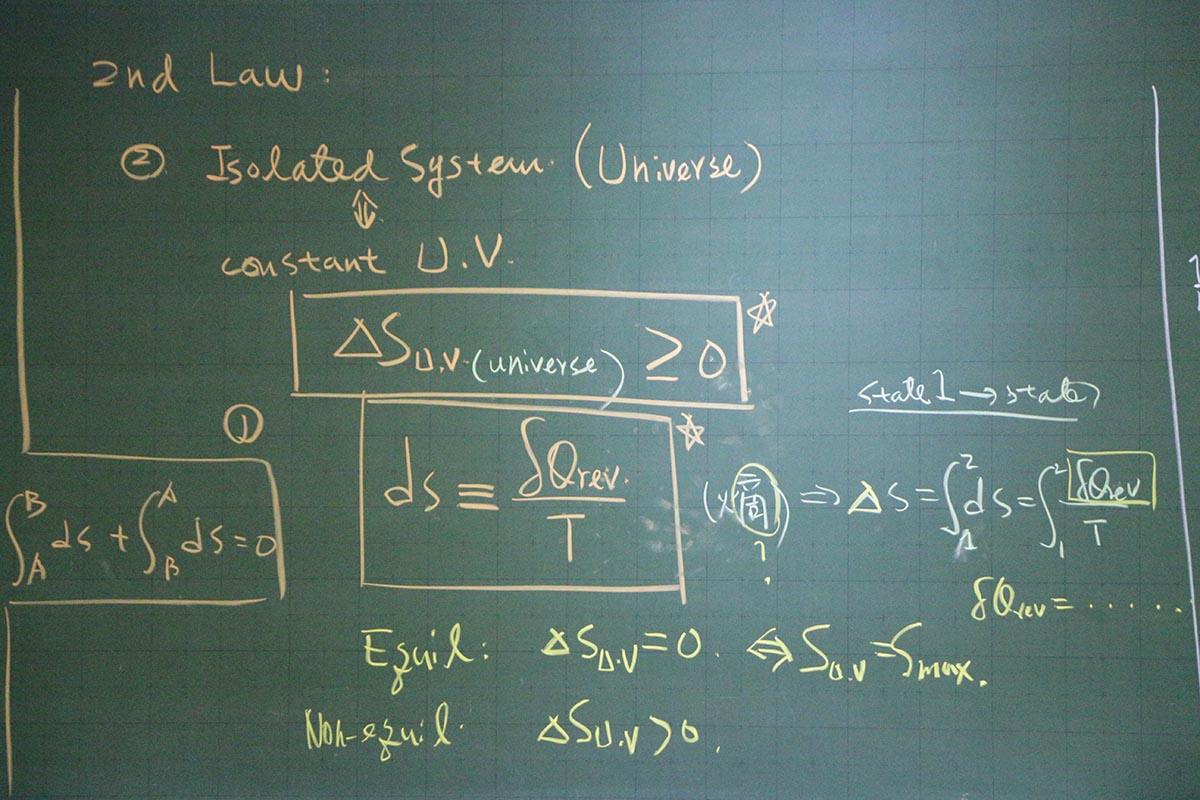 2nd Law:
② Isolated System. (Universe)
⇕
constant U.V.
ΔS U.V. (universe) ≥ 0 ☆
①
∫_A^B ds + ∫_B^A ds = 0
ds ≡ δQrev. / T ☆
state 1 → state
⇒ Δs = ∫_1^2 ds = ∫_1^2 δQrev / T
?
δQrev = ......
Equil: ΔS U.V = 0. ⇔ S U.V = Smax.
Non-equil. ΔS U.V > 0.